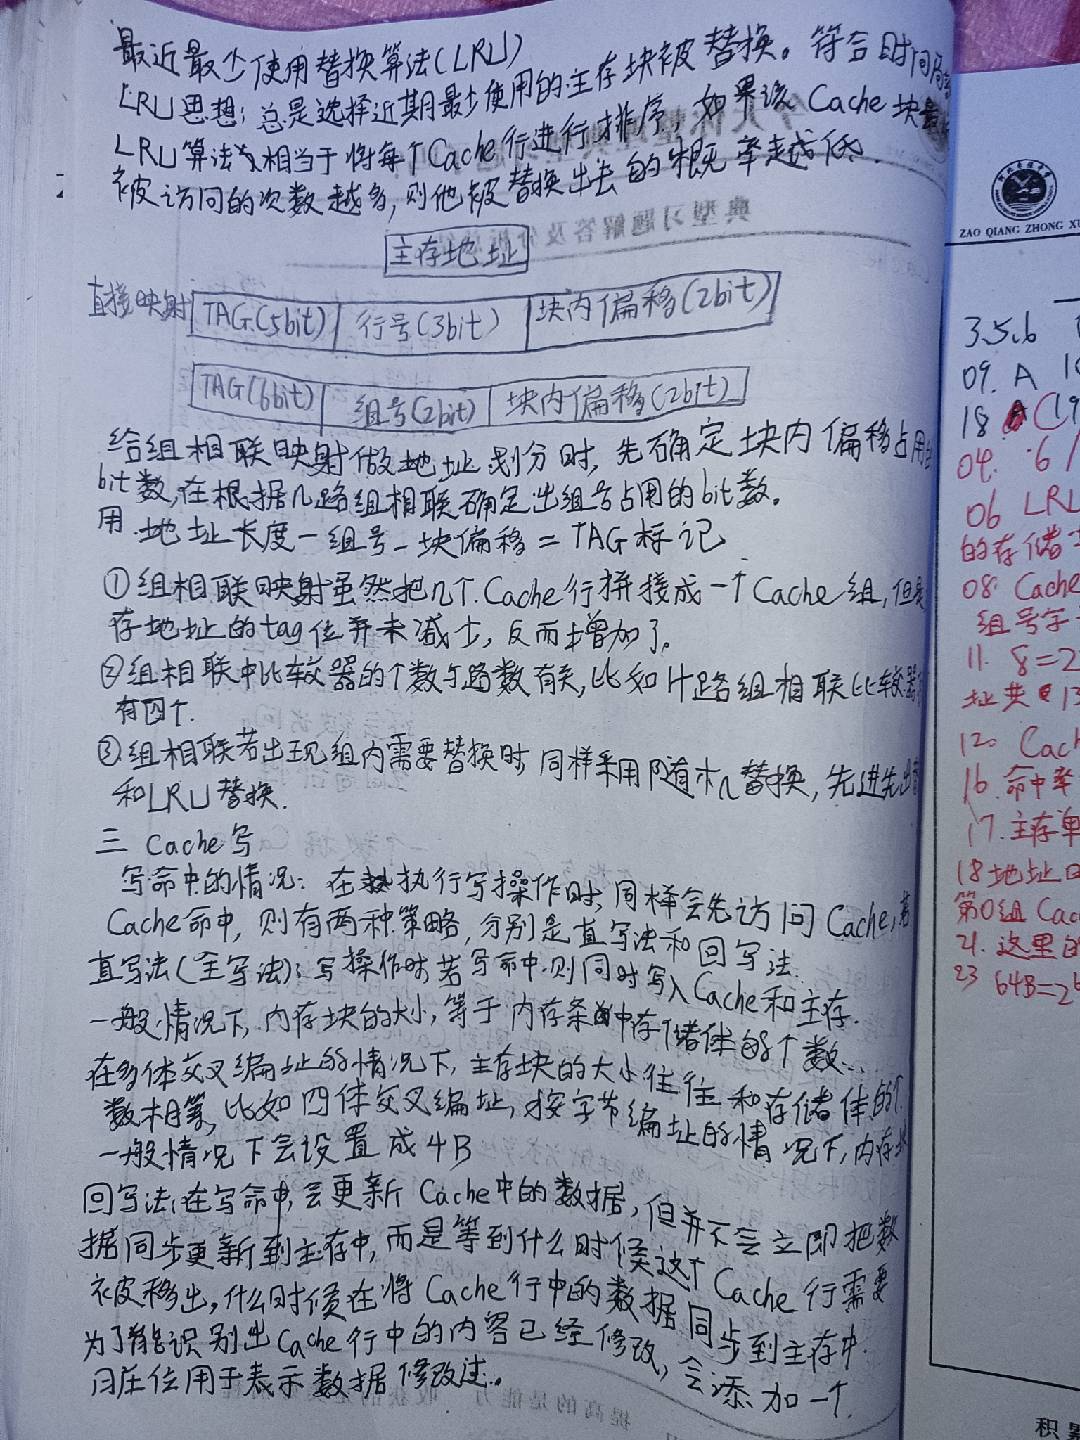 最近最少使用替换算法(LRU)
LRU思想:总是选择近期最少使用的主存块被替换。符合时间局
LRU算法相当于将每个Cache行进行排序,如果该Cache块最
被访问的次数越多,则他被替换出去的概率越低.
主存地址
直接映射 TAG(5bit) 行号(3bit) 块内偏移(2bit)
TAG(6bit) 组号(2bit) 块内偏移(2bit)
给组相联映射做地址划分时,先确定块内偏移占用
bit数,在根据几路组相联确定出组号占用的bit数。
用地址长度-组号-块偏移=TAG标记
①组相联映射虽然把几个Cache行拼接成一个Cache组,但
存地址的tag位并未减少,反而增加了。
②组相联中比较器的个数与路数有关,比如4路组相联比较器
有四个.
③组相联若出现组内需要替换时,同样采用随机替换,先进先出
和LRU替换.
三 Cache写
写命中的情况:在执行写操作时,同样会先访问Cache,若
Cache命中,则有两种策略,分别是直写法和回写法.
直写法(全写法):写操作时,若写命中,则同时写入Cache和主存.
一般情况下,内存块的大小,等于内存条中存储体的个数.
在多体交叉编址的情况下,主存块的大小往往和存储体的个
数相等,比如四体交叉编址,按字节编址的情况下,内存块
一般情况下会设置成4B
回写法:在写命中,会更新Cache中的数据,但并不会立即把数
据同步更新到主存中,而是等到什么时候这个Cache行需要
被移出,什么时候在将Cache行中的数据同步到主存中.
为了能识别出Cache行中的内容已经修改,会添加一个
位用于表示数据修改过.
典型习题解答及分析
ZAO QIANG ZHONG XU
3.5.6
09. A
18
04. 6
06 LRU
的存储
08 Cache
组号字
11. 8=2
址共 13
12 Cach
16. 命中率
17. 主存单
18 地址
第0组 Cac
21. 这里的
23 64B=2
积累